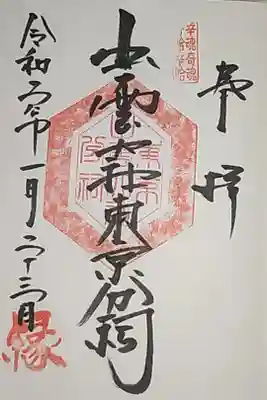 奉拝
幸魂奇魂
出雲大社東京分祠
令和二年一月二十三日
縁